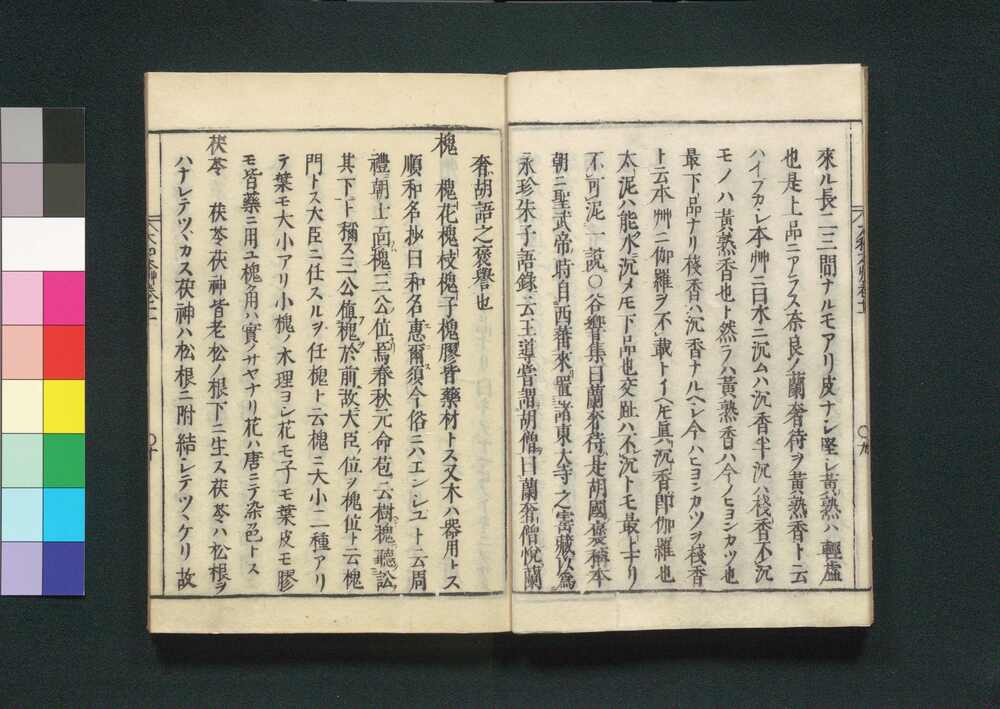 來ル長二三間ナルモアリ皮ナシ堅シ黃熟ハ輕虛
也是上品ニアラス奈良ノ蘭奢待ヲ黃熟香ト云
ハイフカシ本艸ニ曰水ニ沉ムハ沉香半沉ハ棧香不沉
モノハ黃熟香也ト然ラハ黃熟香ハ今ノヒヨンカツ也
最下品ナリ棧香ハ沉香ナルヘシ今ハヒヨンカツヲ棧香
ト云本艸ニ伽羅ヲ不載トイヘ𪜈眞沉香即伽羅也
太泥ハ能水ニ沉メモ下品也交趾ハ不沉トモ最上ナリ
不可泥一說○谷響集曰蘭奢待是胡國褒稱本
朝ニ聖武帝時自西蕃來置諸東大寺之寶藏以爲
永珍朱子語錄云王導嘗謂胡僧曰蘭奢僧悅蘭
奢胡語之褒譽也
槐 槐花槐枝槐子槐膠皆藥材トス又木ハ器用トス
順和名抄曰和名惠爾須今俗ニハエンシユト云周
禮朝士面槐三公位焉春秋元命苞云樹槐聽訟
其下ト稱ス三公植槐於前故大臣ノ位ヲ槐位ト云槐
門トス大臣ニ仕スルヲ任槐ト云槐ニ大小二種アリ
テ葉モ大小アリ小槐ノ木理ヨシ花モ子モ葉皮モ膠
モ皆藥ニ用ユ槐角ハ實ノサヤナリ花ハ唐ニテ染色トス
茯苓 茯苓茯神皆老松ノ根下ニ生ス茯苓ハ松根ヲ
ハナレテツヽカス茯神ハ松根ニ附結シテツヽケリ故